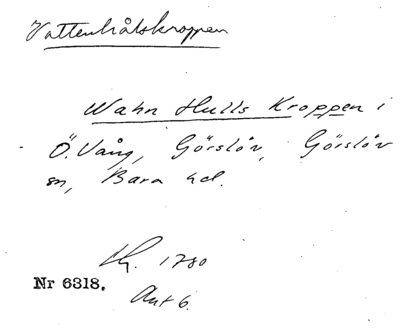 Vattenhålskroppen
Wahn Hulls Kroppen i
Ö. Vång, Görslöv, Görslöv
sn, Bara hd.
1780
Nr 6318.
Akt 6.